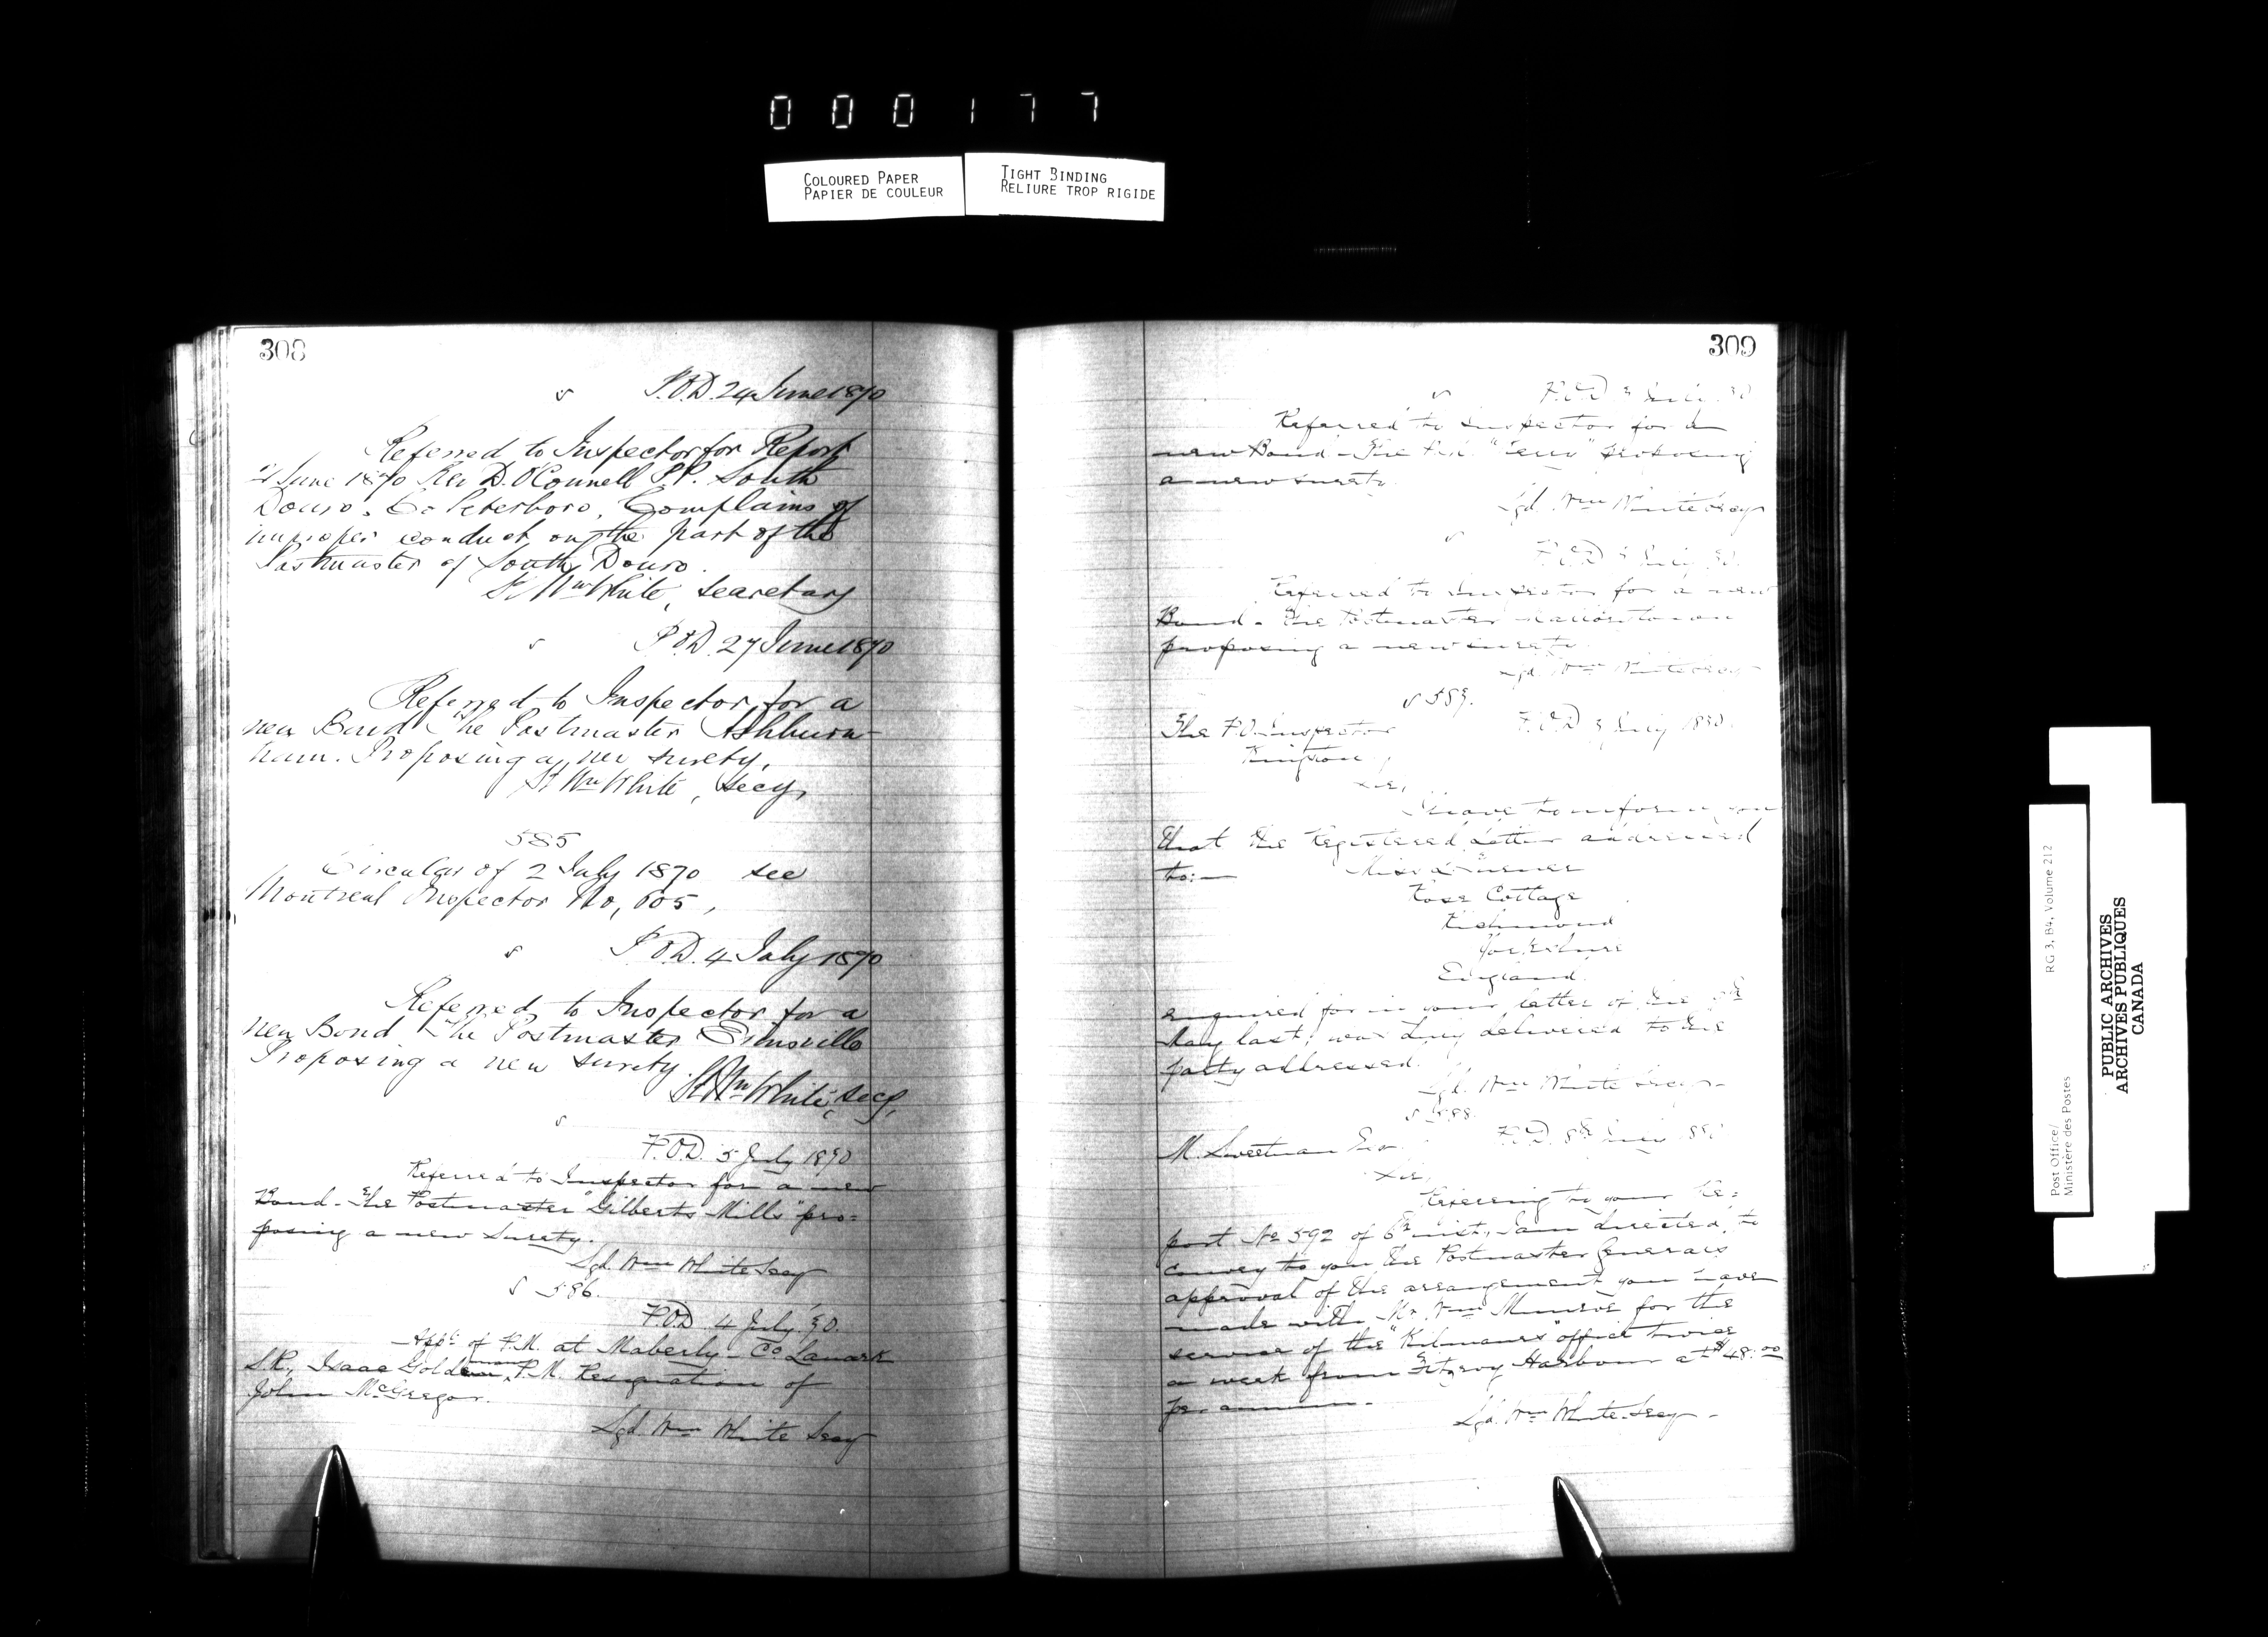 000177
COLOURED PAPER
PAPIER DE COULEUR
TIGHT BINDING
RELIURE TROP RIGIDE
308
P.O.D. 24 June 1870
Referred to Inspector for Report
2 June 1870 Rev D. O'Connell P.P. South
Douro. Co Peterboro, Complains of
improper conduct on the part of the
Postmaster of South Douro.
Wm White, secretary
P.O.D. 27 June 1870
Referred to Inspector for a
new Bond The Postmaster Ashburn-
ham. Proposing a new surety,
Wm White, secy,
585
Circular of 2 July 1870 see
Montreal Inspector No, 605,
P.O.D. 4 July 1870
Referred to Inspector for a
new Bond The Postmaster
Proposing a new surety.
Wm White, secy,
P.O.D. 5 July 1870
Referred to Inspector for a new
Bond - The Postmaster "Gilberts Mills" pro=
posing a new Surety.
Sgd. Wm White Secy
586.
P.O.D. 4 July 70.
Appt. of P.M. at Maberly - Co. Lanark
S.R., Isaac Gold man P.M. Resignation of
John McGregor.
Sgd. Wm White Secy
309
P.O.D July
Referred to Inspector for a
new Bond - The P.M. proposing
a new surety.
Sgd. Wm White Secy
P.O.D July
Referred to Inspector for a new
Bond - The Postmaster
proposing a new surety.
Sgd. Wm White Secy
The P.O. Inspector
P.O.D July
Kingston
Sir,
I have to inform you
that the Registered Letter addressed
to:— Miss
Rose Cottage
Richmond
Yorkshire
England.
enquired for in your letter of the
May last, was duly delivered to the
party addressed.
Sgd. Wm White Secy -
588.
P.O.D. 8th July
M. Sweetnam Esq
Sir,
Referring to your Re=
port No 592 of 6th inst., I am directed to
convey to you the Postmaster Generals
approval of the arrangement you have
made with Mr. Wm Munroe for the
service of the "Kilmaurs" office twice
a week from Fitzroy Harbour at $48.00
per annum -
Sgd. Wm White Secy -
Post Office/
Ministère des Postes
RG 3, B4, Volume 212
PUBLIC ARCHIVES
ARCHIVES PUBLIQUES
CANADA